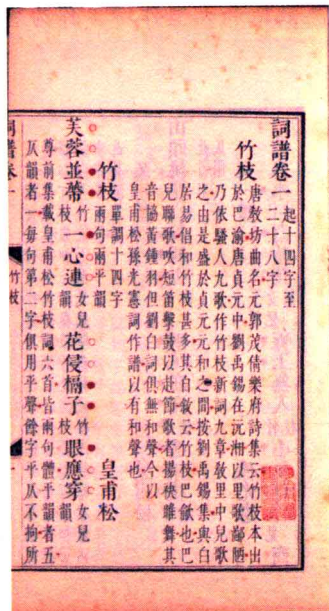 詞譜卷一 起十四字至二十八字
竹枝 唐敎坊曲名元郭茂倩樂府詩集云竹枝本出
於巴渝唐貞元中劉禹錫在沅湘以里歌鄙陋
乃依騷人九歌作竹枝新詞九章敎里中兒歌
之由是盛於貞元元和之間按劉禹錫集與白
居易倡和竹枝甚多其自敘云竹枝巴歈也巴
兒聯歌吹短笛擊鼓以赴節歌者揚袂睢舞其
音協黃鍾羽但劉白詞俱無和聲今以
皇甫松孫光憲詞作譜以有和聲也
竹枝 單調十四字兩句兩平韻 皇甫松
芙蓉並蔕竹枝一心連女兒韻花侵槅子竹枝眼應穿女兒韻
尊前集載皇甫松竹枝詞六首皆兩句體平韻者五
仄韻者一每句第二字俱用平聲餘字平仄不拘所
詞譜卷一 竹枝